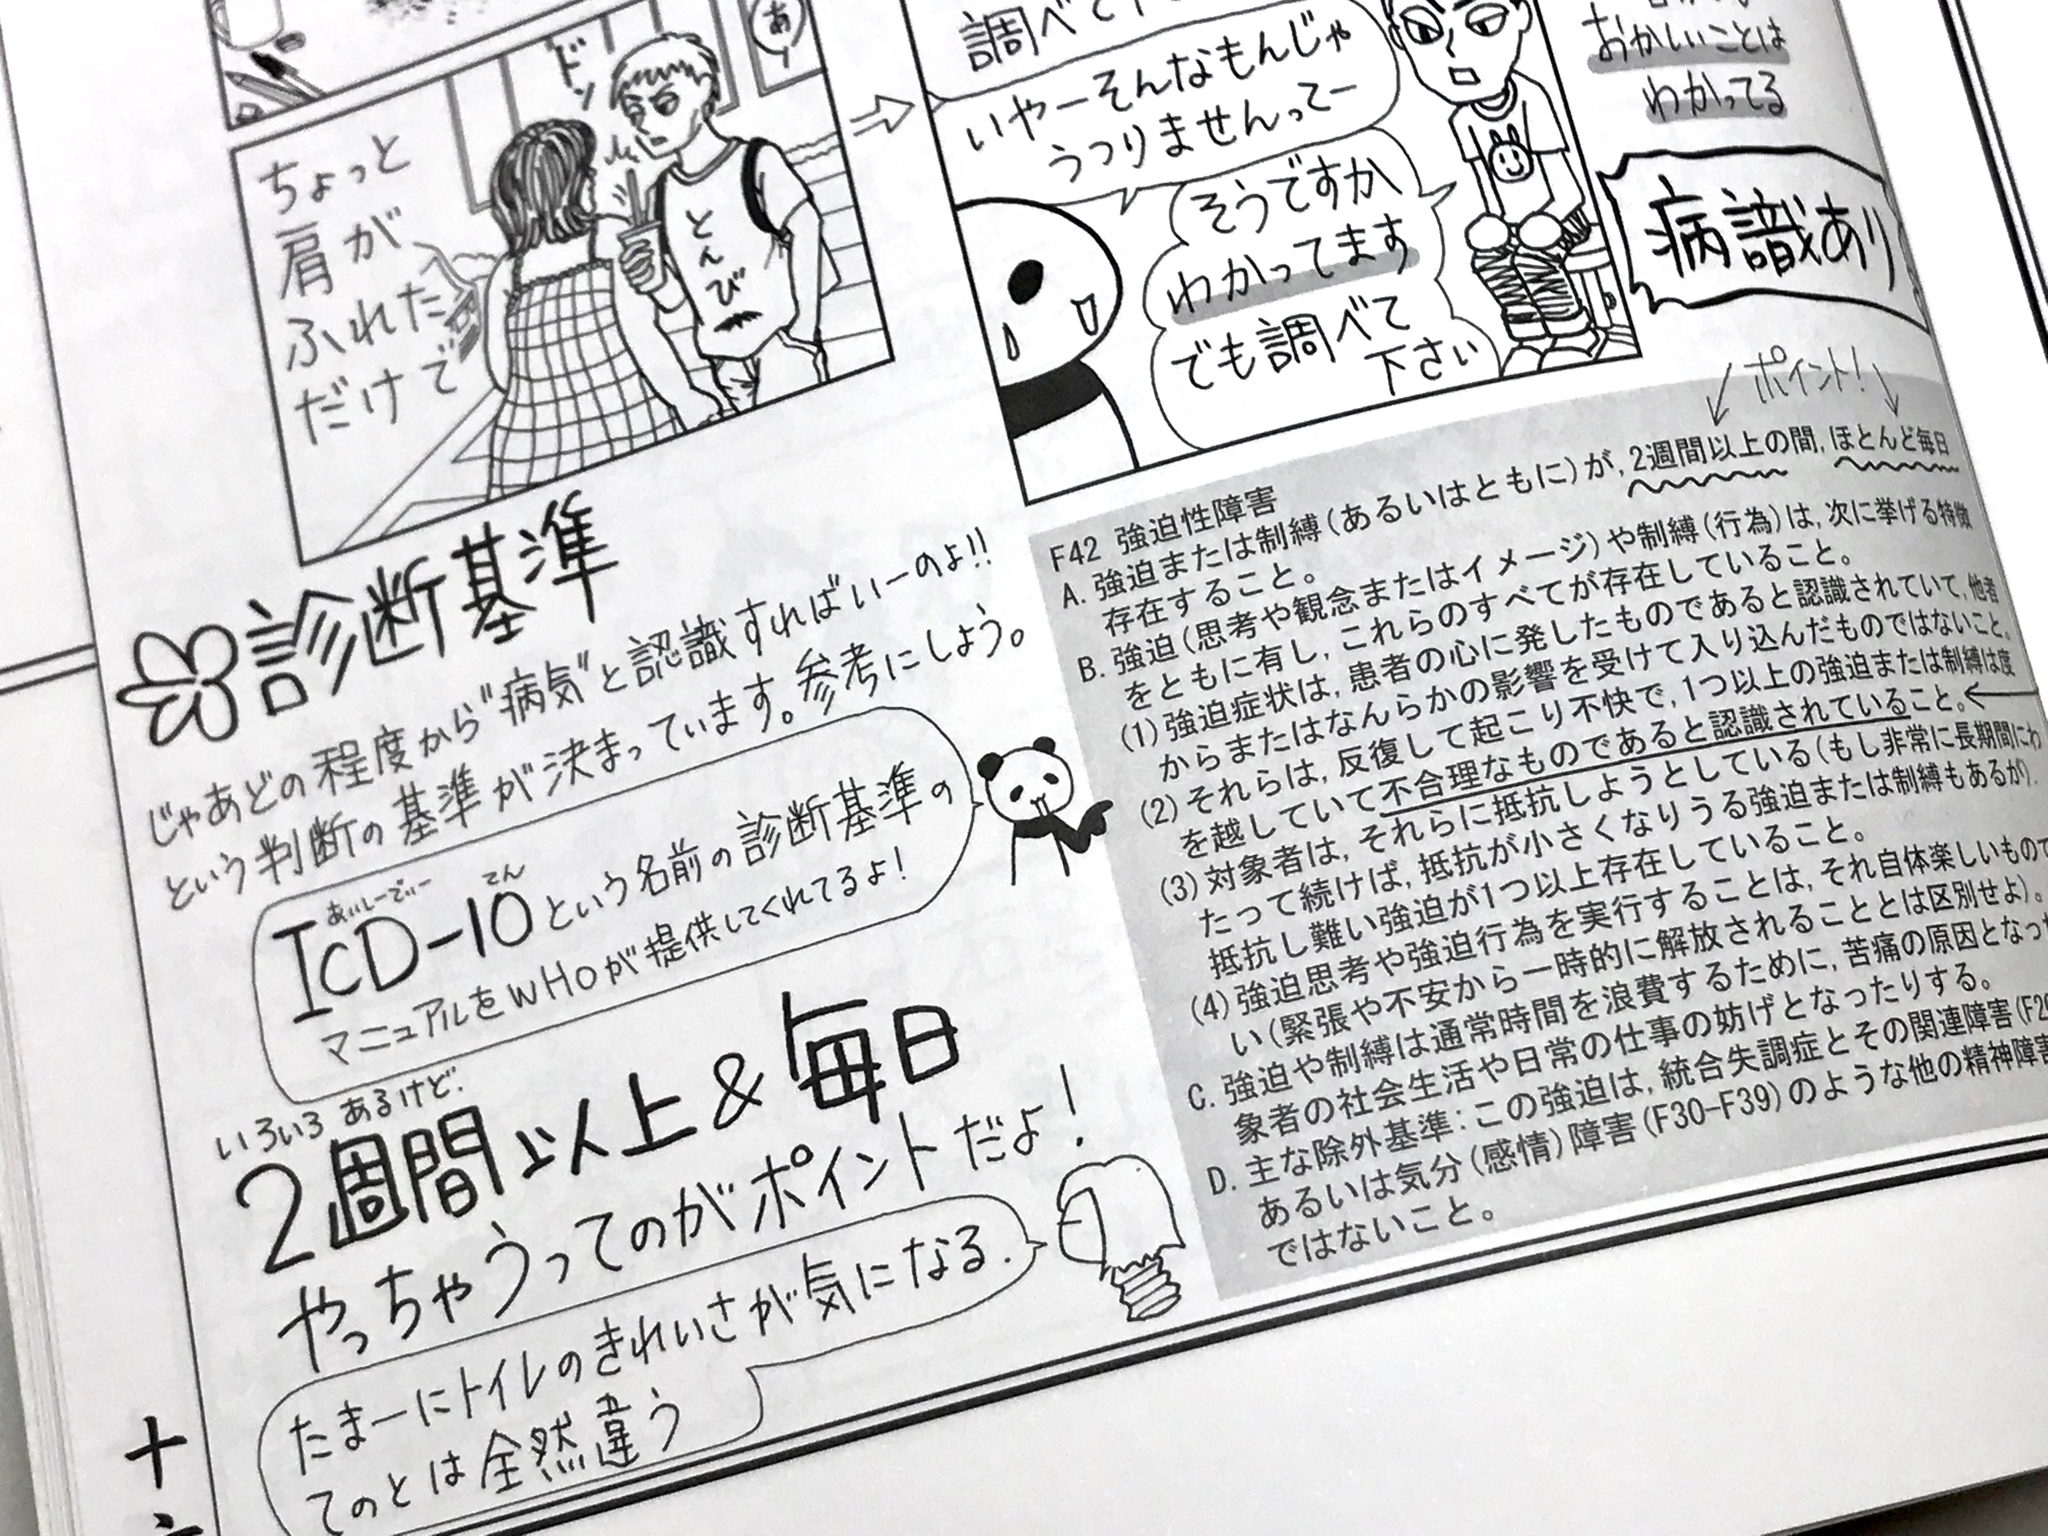 ドン
あ!
ちょっと
肩が
ふれた
だけで
とんび
いやーそんなもんじゃ
うつりませんってー
そうですか
わかってます
でも調べて
下さい
おかしいことは
わかってる
病識あり
診断基準
じゃあどの程度から"病気"と認識すればいーのよ!!
という判断の基準が決まっています。参考にしよう。
あいしーでぃー てん
ICD-10という名前の診断基準の
マニュアルをWHOが提供してくれてるよ!
いろいろあるけど.
2週間以上&毎日
やっちゃうってのがポイントだよ!
たまーにトイレのきれいさが気になる.
てのとは全然違う
ポイント!
F42 強迫性障害
A. 強迫または制縛(あるいはともに)が, 2週間以上の間, ほとんど毎日
存在すること。
B. 強迫(思考や観念またはイメージ)や制縛(行為)は, 次に挙げる特徴
をともに有し, これらのすべてが存在していること。
(1) 強迫症状は, 患者の心に発したものであると認識されていて, 他者
からまたはなんらかの影響を受けて入り込んだものではないこと。
(2) それらは, 反復して起こり不快で, 1つ以上の強迫または制縛は度
を越していて不合理なものであると認識されていること。
(3) 対象者は, それらに抵抗しようとしている(もし非常に長期間にわ
たって続けば, 抵抗が小さくなりうる強迫または制縛もあるが).
抵抗し難い強迫が1つ以上存在していること。
(4) 強迫思考や強迫行為を実行することは, それ自体楽しいもので
い(緊張や不安から一時的に解放されることとは区別せよ)。
C. 強迫や制縛は通常時間を浪費するために, 苦痛の原因となった
象者の社会生活や日常の仕事の妨げとなったりする。
D. 主な除外基準:この強迫は, 統合失調症とその関連障害(F2
あるいは気分(感情)障害(F30-F39)のような他の精神障害
ではないこと。
十